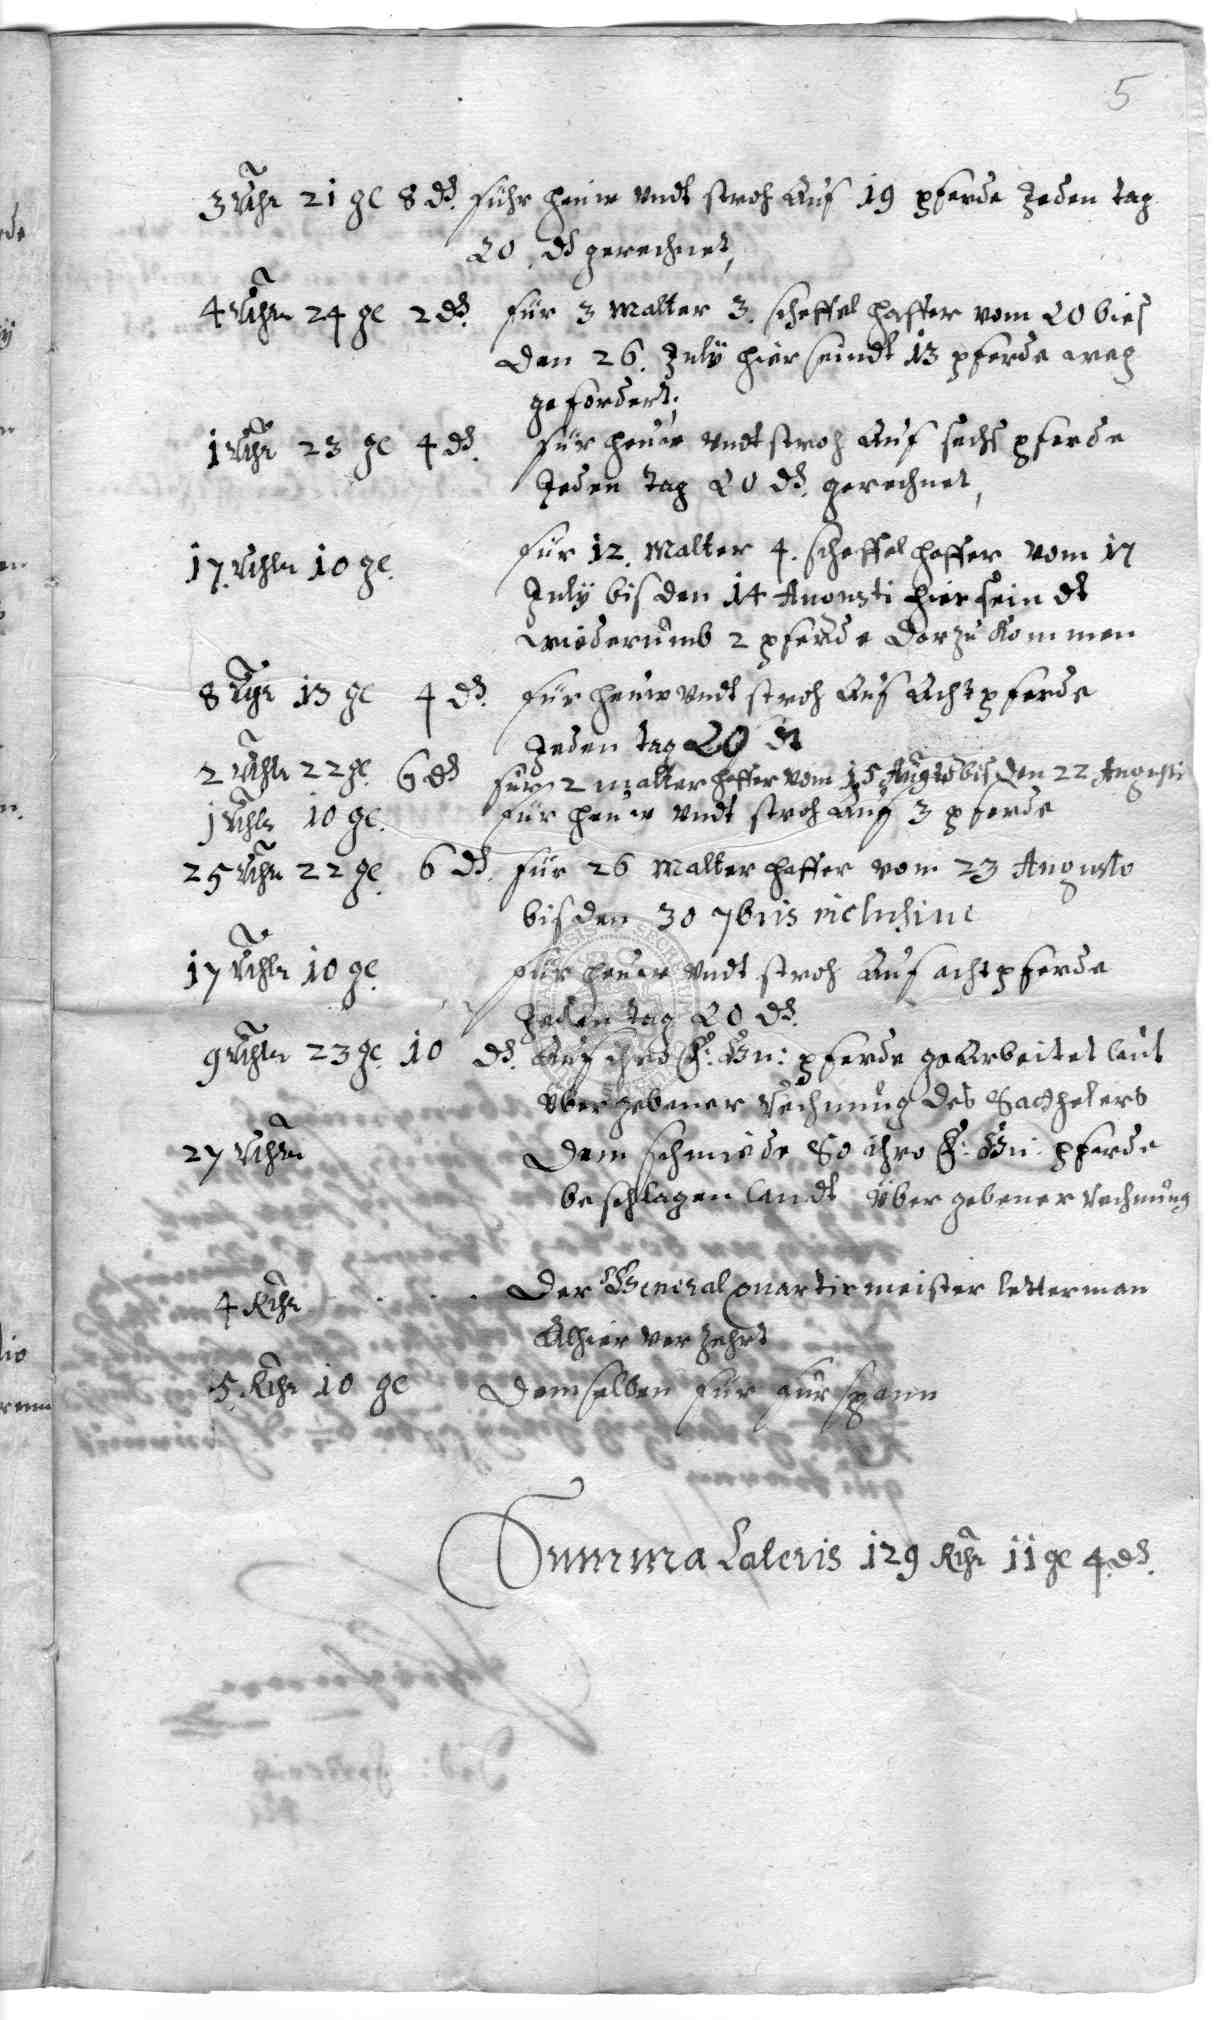 5
3 Rthr 21 gl 8 d. führ heuw vndt stroh Auf 19 pferde Jeden tag
20 d gerechnet,
4 Rthr 24 gl 2 d. für 3 Malter 3. scheffel haffer vom 20 bies
den 26. July hier seindt 13 pferde weg
gefordert.
1 Rthr 23 gl 4 d. für heuw vndt stroh Auf sechs pferde
Jeden tag 20 d. gerechnet,
17. Rthlr 10 gl. für 12. Malter 4. scheffel haffer vom 17
July bis den 14 Augusti hier seindt
wiederumb 2 pferde darzu kommen
8 Rthr 13 gl 4 d. für heuw vndt stroh Auf Acht pferde
Jeden tag 20 d
2 Rthlr 22 gl. 6 d für 2 malter haffer vom 15 Augusto bis den 22 Augusti
1 Rthlr 10 gl. für heuw vndt stroh Auf 3 pferde
25 Rthr 22 gl. 6 d. für 26 Malter haffer vom 23 Augusto
bis den 30 7bris inclusive
17 Rthlr 10 gl. für heuw vndt stroh Auf acht pferde
Jeden tag 20 d.
9 Rthlr 23 gl. 10 d. Auf ihro F: Gn: pferde geArbeitet laut
vbergebener Rechnung des Satthelers
27 Rthlr Dem schmiede So ihro F: Gn: pferde
beschlagen laudt vbergebener Rechnung
4 Rthr . . . . Der General quartirmeister letterman
Alhier verzehrt
5. Rthr 10 gl Demselben für fürspann
Summa Lateris 129 Rthr 11 gl 4. d.